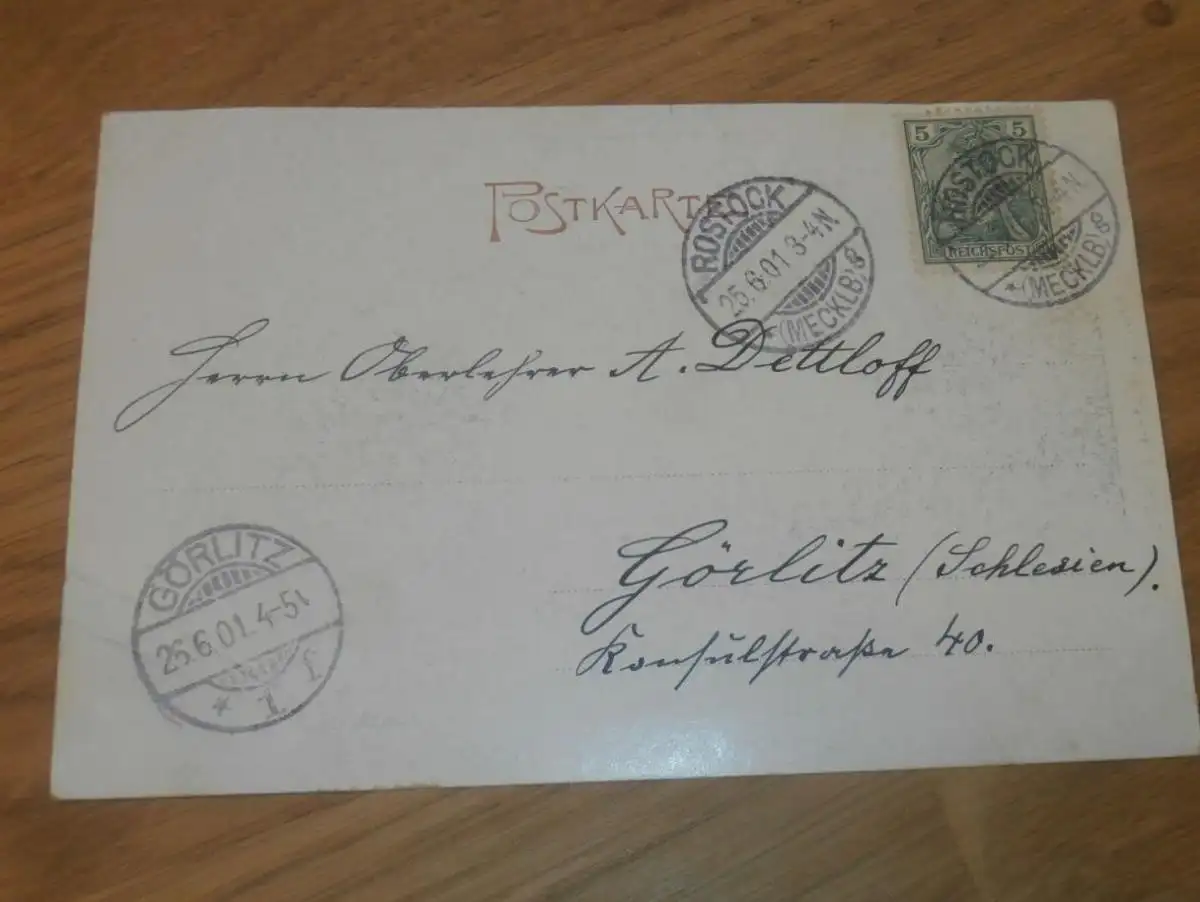 5 5
REICHSPOST
POSTKARTE
ROSTOCK
25.6.01 3-4N.
* (MECKLB.)
ROSTOCK
* (MECKLB.)
Herrn Oberlehrer A. Dettloff
Görlitz (Schlesien).
Konsulstraße 40.
GÖRLITZ
26.6.01. 4-5
* 1